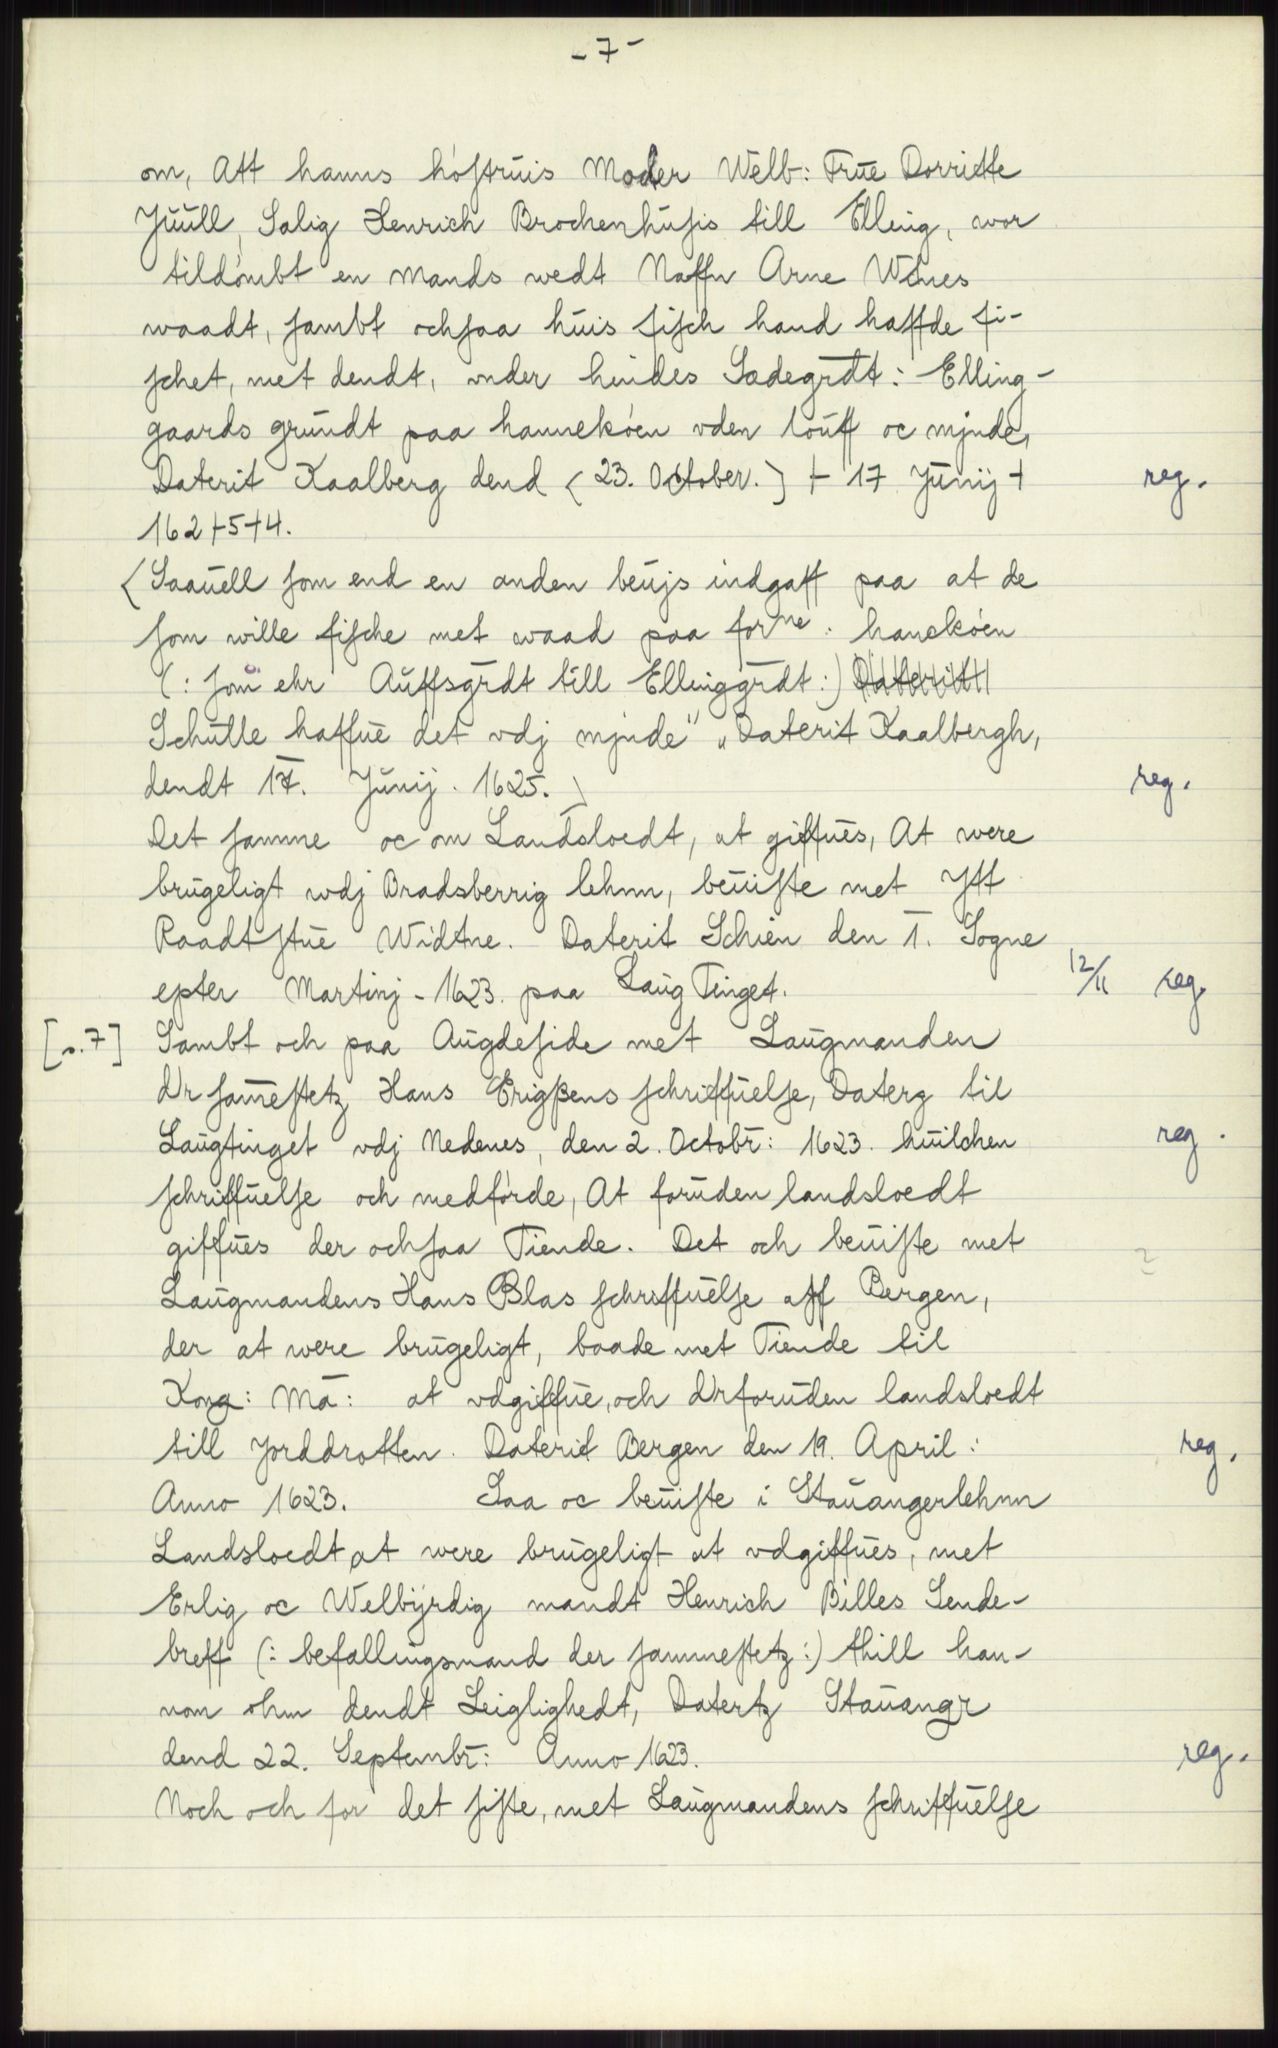 - 7 -
om, Att hanns høstruis Moder Welb: Frue Dorritte
Juull, Salig Henrich Brochenhusis till Elling, wor
tildømbt en Mands wedt Naffn Arne Wenes
waadt, sambt ochsaa huis fisch hand haffde fi-
schet, met dendt, vnder hindes Sædegrdt: Elling-
gaards grundt paa hannekøen vden louff oc minde,
Daterit Kaalberg dend < 23. October. > + 17 Junij + reg.
162+5+4.
< Saauell som end en anden beujs indgaff paa at de
som wille fische met waad paa forne. hanekøen
(: som ehr Auffsgrdt till Ellinggrdt:) Daterit
Schulle haffue det vdj minde" „Daterit Kaalbergh,
dendt 17. Junij. 1625. > reg.
Det samme oc om Landsloedt, at giffues, At were
brugeligt wdj Bradsberrig lehnn, beuiste met Itt
Raadtstue Widtne. Daterit Schien den 1. Sogne
epter Martinj - 1623. paa Laug Tinget. 12/11 reg.
[s. 7] Sambt och paa Augdeside met Laugmanden
dr samestetz Hans Erigßens schriffuelse, Daterz til
Laugtinget vdj Nedenes, den 2. Octobr: 1623. huilchen reg.
schriffuelse och medførde, At foruden landsloedt
giffues der ochsaa Tiende. Det och beuiste met
Laugmandens Hans Blas schriffuelse aff Bergen,
der at were brugeligt, baade met Tiende til
Kong: Ma: at vdgiffue, och drforuden landsloedt
till Jorddrotten. Daterit Bergen den 19. April: reg.
Anno 1623. Saa oc beuiste i Stauangerlehnn
Landsloedt at were brugeligt at vdgiffues, met
Erlig oc Welbyrdig mandt Henrich Billes Sende-
breff (: befallingsmand der sammestetz:) thill han-
nom ohm dendt Leiglighedt, Datertz Stauangr
dend 22. Septembr: Anno 1623. reg.
Noch och for det siste, met Laugmandens schriffuelse